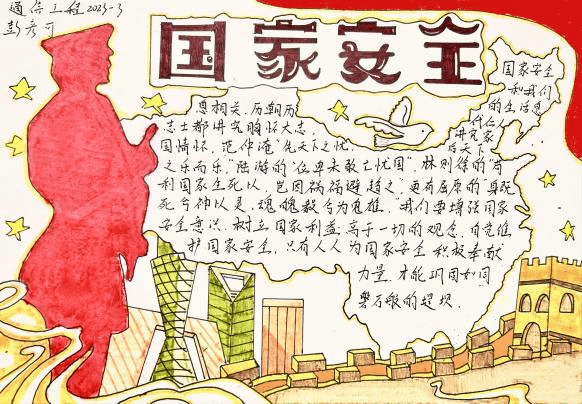 通信工程2023-3
彭彦可
国家安全
国家安全
和我们
的生活息
息相关,历朝历
代仁人
志士都讲究胸怀大志,
讲究家
国情怀,范仲淹“先天下之忧,
后天下
之乐而乐,”陆游的“位卑未敢亡忧国”,林则徐的“苟
利国家生死以,岂因祸福避趋之”,更有屈原的“身既
死兮神以灵,魂魄毅兮为鬼雄,”我们要增强国家
安全意识,树立国家利益高于一切的观念,自觉维
护国家安全,只有人人为国家安全积极奉献
力量,才能巩固如同
磐石般的堤坝.